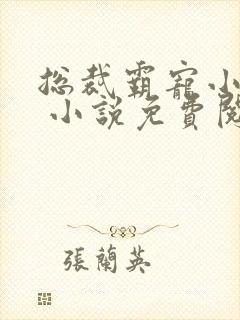 總裁霸寵小
小說免費閱
張蘭英